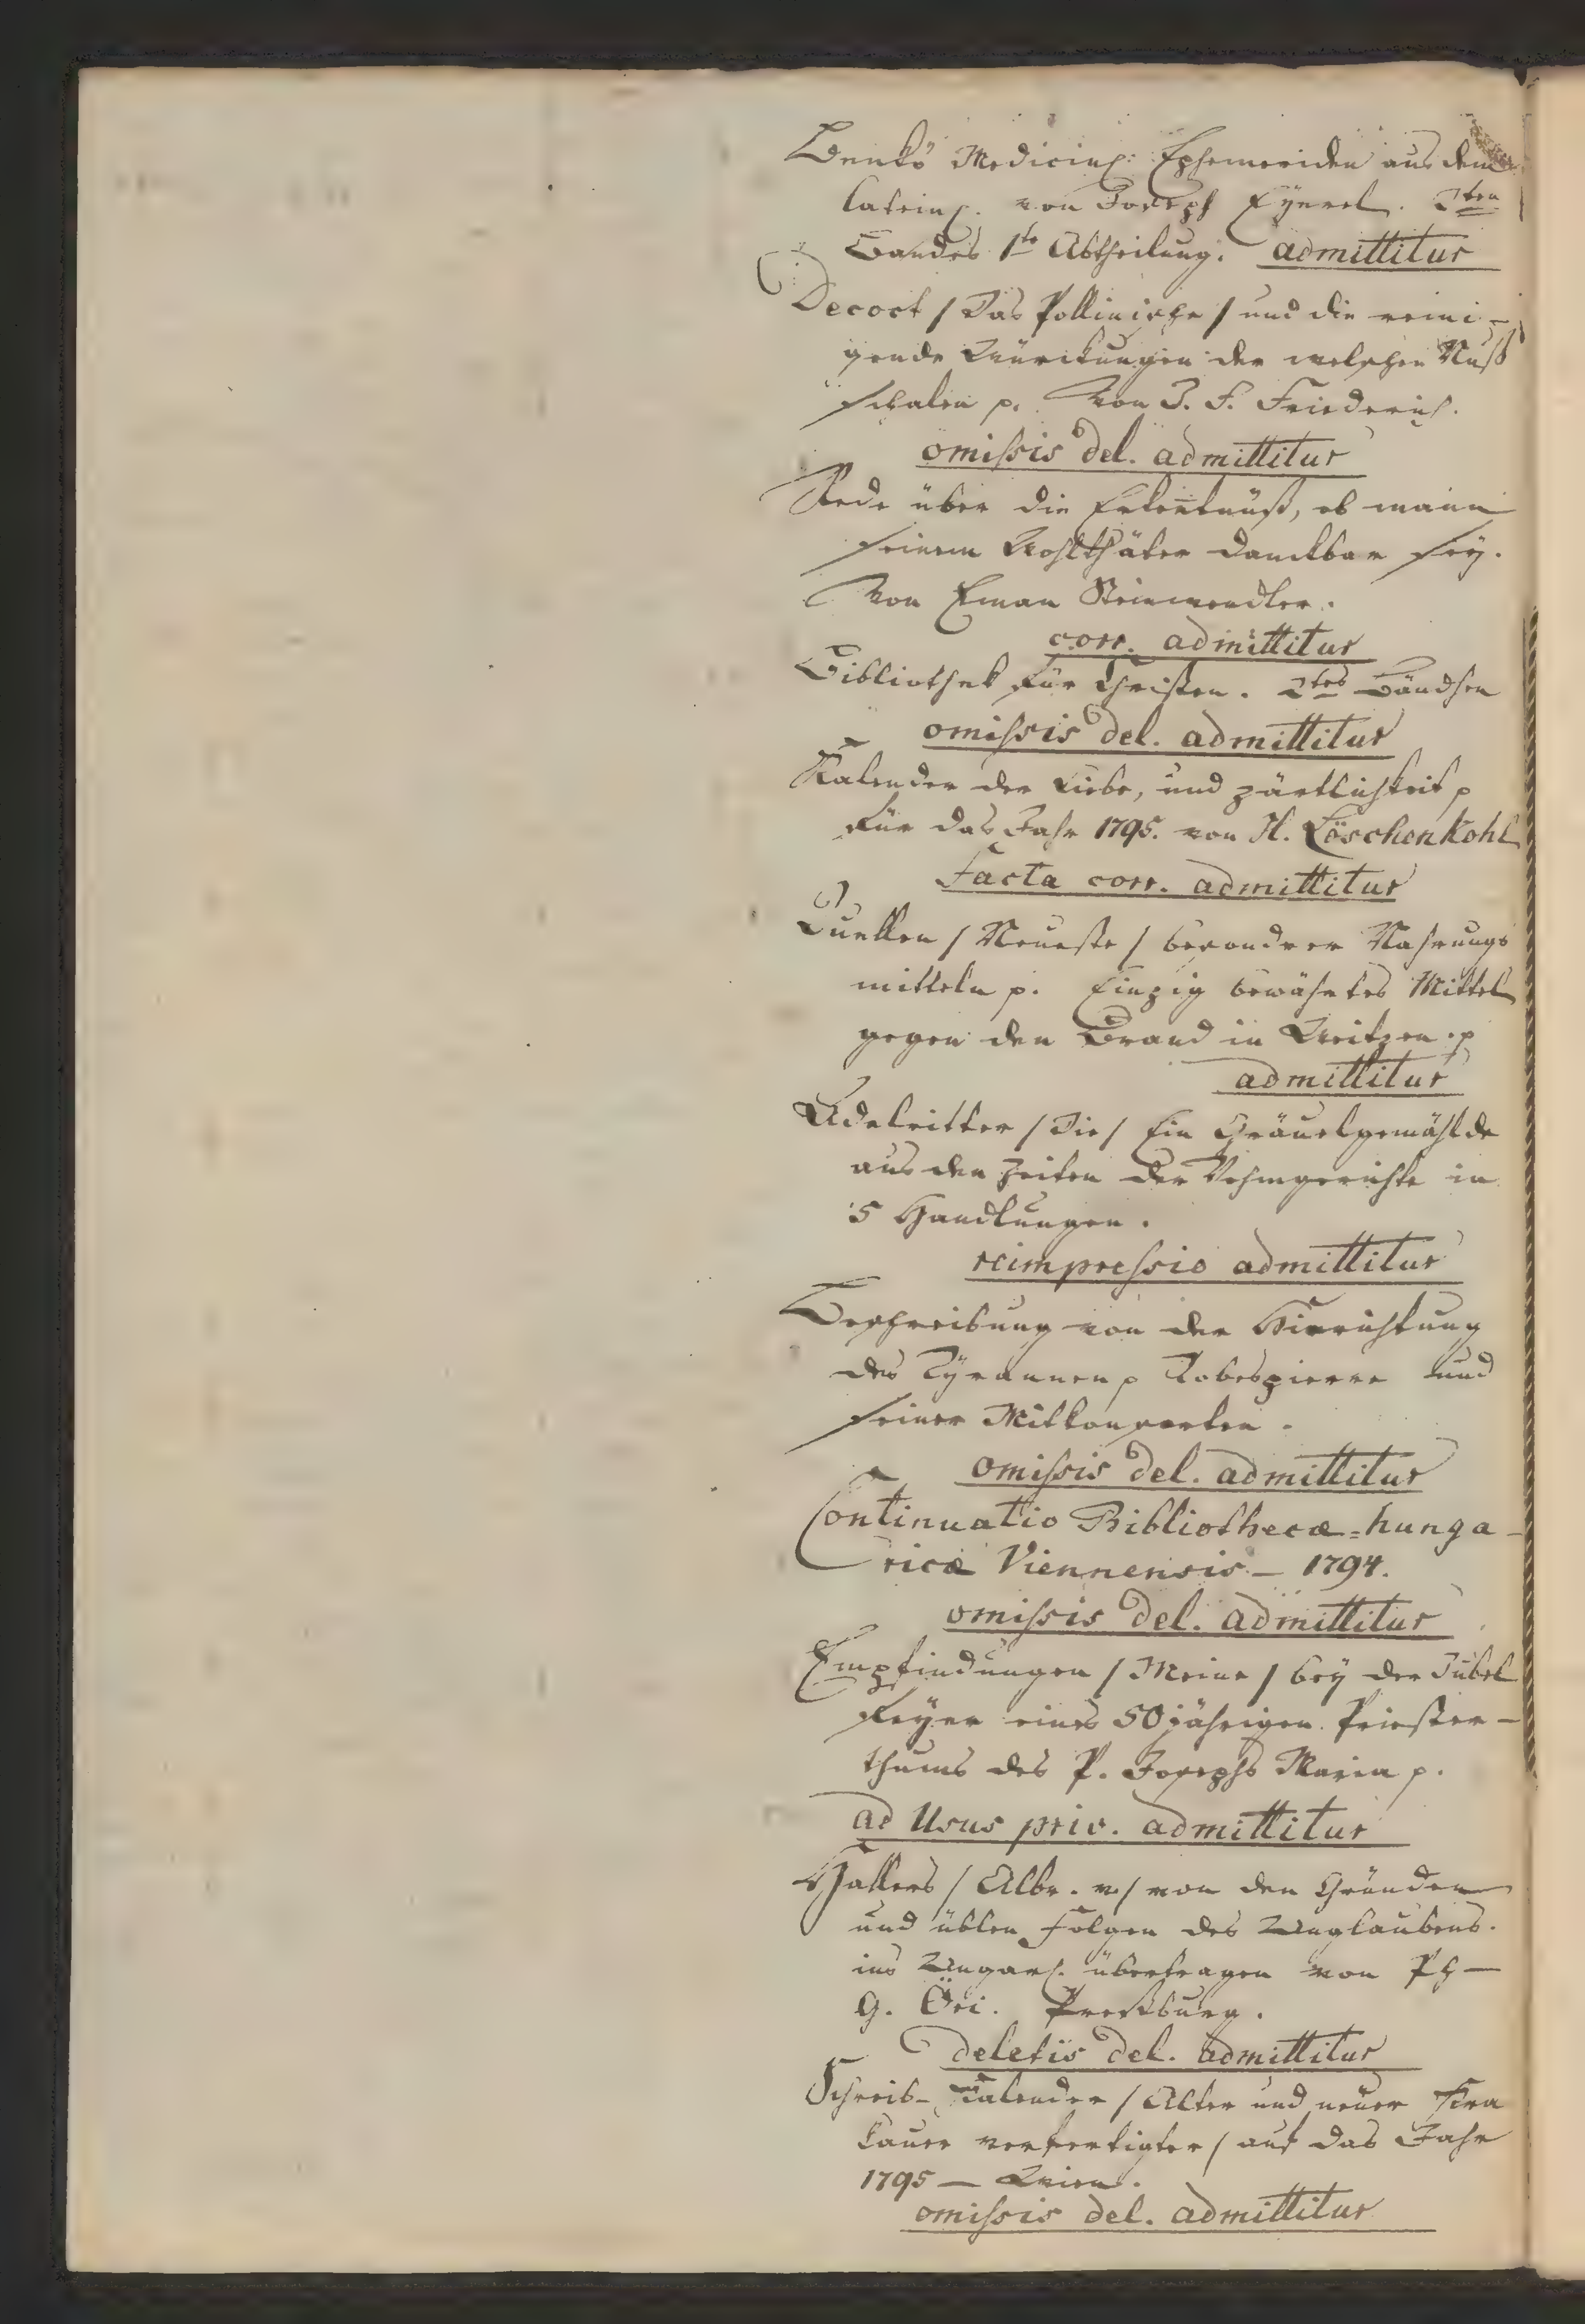 Benkö Medicinisch: Ephemeriden aus dem
latein. von Joseph Eyerel. 2ten
Bandes 1te Abtheilung. admittitur
Decoct / Das Pollinische / und die reini-
gende Würckungen der welschen Nuß
schalen p. Von J. F. Friederich.
omissis del. admittitur
Rede über die Erkentnüß, ob mann
seinem Wohlthäter danckbar sey.
Von Eman Steinwendler.
corr. admittitur
Bibliothek für Christen. 2tes Bändchen
omissis del. admittitur
Kalender der Liebe, und zärtlichkeit p
für das Jahr 1795. von H. Löschenkohl
Facta corr. admittitur
Quellen / Neueste / besonderer Nahrungs
mitteln p. Einzig bewährtes Mittel
gegen den Brand in Weitzen. p
admittitur
Adelritter / Die / Ein Gräuelgemählde
aus den Zeiten der Vehmgerichte in
5 Handlungen.
reimpressio admittitur
Beschreibung von der Hinrichtung
des Tyrannen p Robespierre und
seiner Mitkonsorten.
omissis del. admittitur
Continuatio Bibliothecæ=hunga-
ricæ Viennensis – 1794.
omissis del. admittitur
Empfindungen / Meine / bey der Jubel
Feyer eines 50jährigen Priester-
thums des P. Josephs Maria p.
ad Usus priv. admittitur
Hallers / Albr. v. / von den Gründen
und üblen Folgen des Unglaubens.
ins Ungar. übertragen von
G. Öri. Preßburg.
deletis del. admittitur
Schreib-Kalender / Alter und neuer Kra
kauer verfertigter / auf das Jahr
1795 — Wien.
omissis del. admittitur